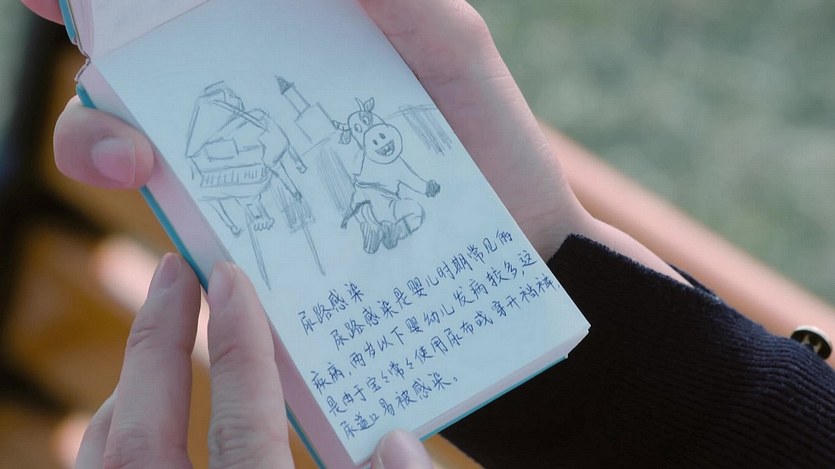 尿路感染
尿路感染是婴儿时期常见的
疾病,两岁以下婴幼儿发病较多这
是由于宝々常々使用尿布或穿开裆裤,
尿道口易被感染。